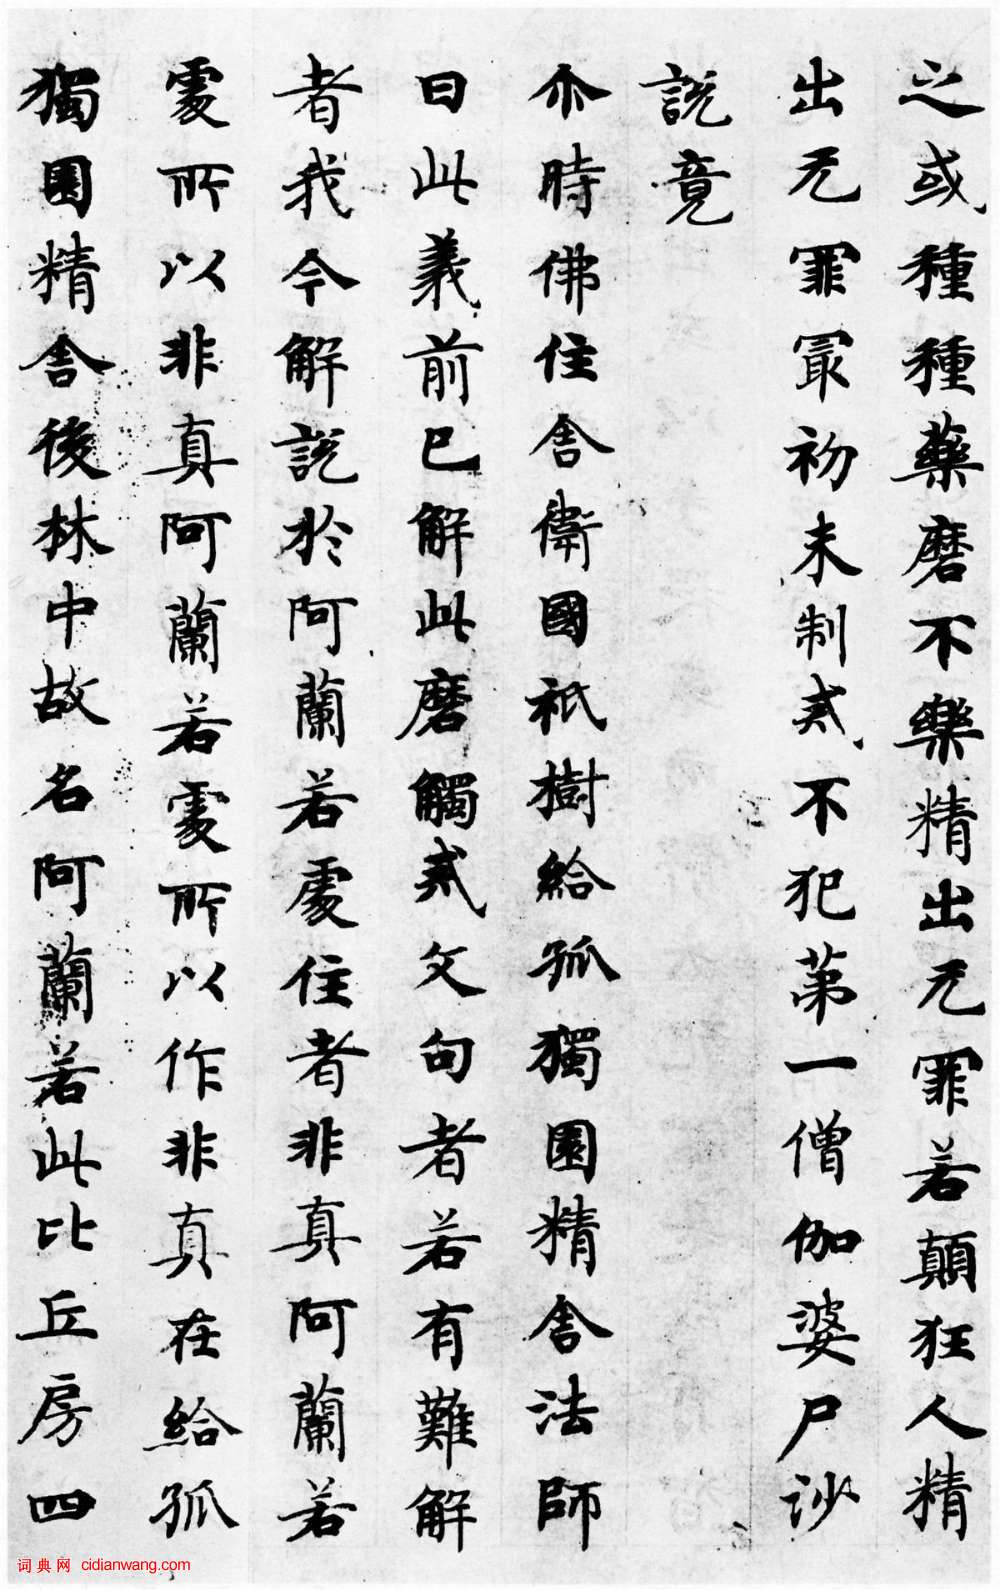 之或種種藥磨不樂精出无罪若顛狂人精
出无罪冣初未制戒不犯苐一僧伽婆尸沙
說竟
尒時佛住舍衛國祇樹給孤獨園精舍法師
曰此義前已解此磨觸戒文句者若有難解
者我今解說於阿蘭若處住者非真阿蘭若
處所以非真阿蘭若處所以作非真在給孤
獨園精舍後林中故名阿蘭若此比丘房四
词典网 cidianwang.com